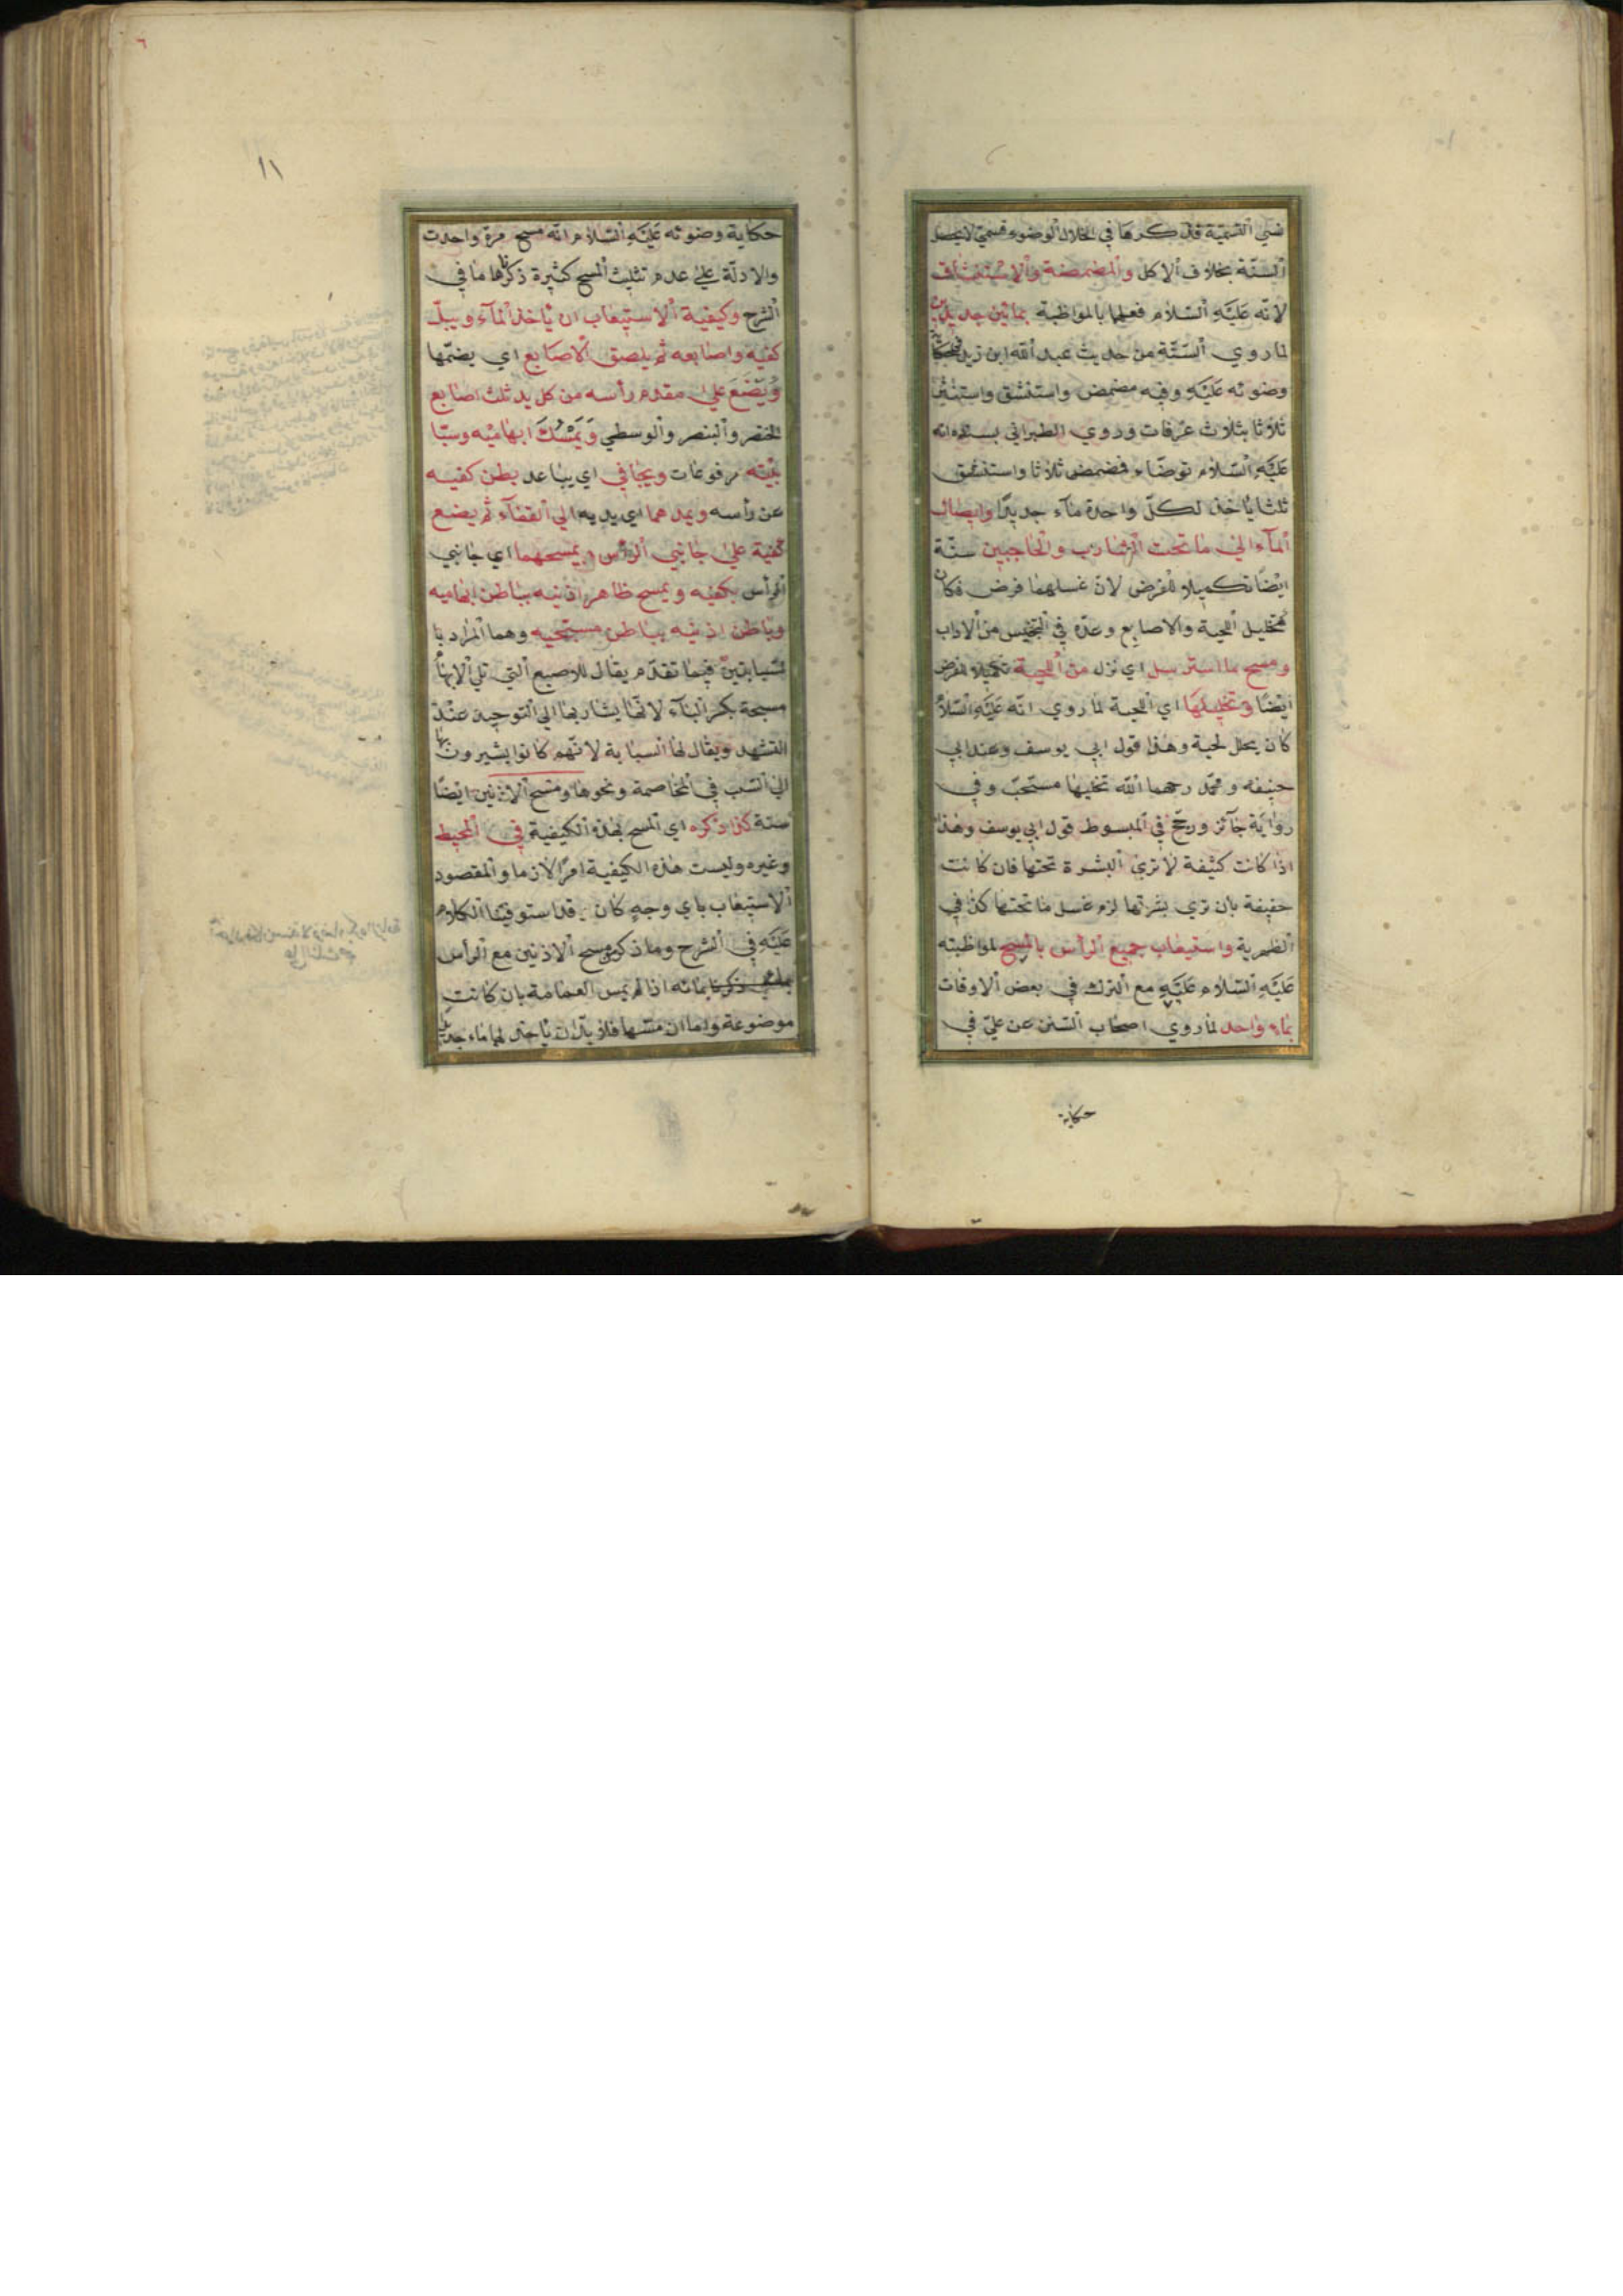 نسي التسمية فذكرها في خلال الوضوء فسمي لا يحصل
السنة بخلاف الاكل والمضمضة والاستنشاق
لانه عليه السلام فعلهما بالمواظبة بمائين جديدين
لما روي الستة من حديث عبد الله ابن زيد في حكاية
وضوئه عليه وفيه مضمض واستنشق واستنثر
ثلاثا بثلاث غرفات وروي الطبراني بسنده انه
عليه السلام توضاء فمضمض ثلاثا واستنشق
ثلثا ياخذ لكل واحدة ماء جديدا وايصال
الماء الي ما تحت الشارب والحاجبين سنة
ايضا تكميلا للفرض لان غسلهما فرض فكان
كتخليل اللحية والاصابع وعده في التجنيس من الاداب
ومسح ما استرسل اي نزل من اللحية تكميلا للفرض
ايضا وتخليلها اي اللحية لما روي انه عليه السلام
كان يخلل لحية وهذا قول ابي يوسف وعند ابي
حنيفه ومحمد رحمهما الله تخليلها مستحب وفي
رواية جائز ورجح في المبسوط قول ابي يوسف وهذا
اذا كانت كثيفة لا تري البشرة تحتها فان كانت
خفيفة بان تري بشرتها لزم غسل ما تحتها كذا في
الظهرية واستيعاب جميع الرأس بالمسح لمواظبته
عليه السلام عليه مع الترك في بعض الاوقات
بماء واحد لما روي اصحاب السنن عن علي في
حكاية
١١
حكاية وضوئه عليه السلام انه مسح مرة واحدت
والادلة علي عدم تثليث المسح كثيرة ذكرناها في
الشرح وكيفية الاستيعاب ان ياخذ الماء ويبل
كفيه واصابعه ثم يلصق الاصابع اي يضمها
ويضع علي مقدم رأسه من كل يد ثلث اصابع
الخنصر والبنصر والوسطي ويمسك ابهاميه وسبا
بتيه مرفوعات ويجافي اي يباعد بطن كفيه
عن رأسه ويمدهما اي يديه الي القفاء ثم يضع
كفيه علي جانبي الرأس ويمسحهما اي جانبي
الرأس بكفيه ويمسح ظاهر اذنيه بباطن ابهاميه
وباطن اذنيه بباطن مسبحتيه وهما المراد با
لسبابتين فيما تقدم يقال للاصبع التي تلي الابهام
مسبحة بكسر الباء لانها يشار بها الي التوحيد عند
التشهد ويقال لها السبابة لانهم كانوا يشيرون بها
الي السب في المخاصمة ونحوها ومسح الاذنين ايضا
سنة كذا ذكره اي المسح بهذه الكيفية في المحيط
وغيره وليست هذه الكيفية امرا لازما والمقصود
الاستيعاب باي وجه كان قد استوفينا الكلام
عليه في الشرح وما ذكر من مسح الاذنين مع الرأس
بمائه اذا لم يمس العمامة بان كانت
موضوعة واما ان مسها فلا بد ان ياخذ لهما ماء جديدا